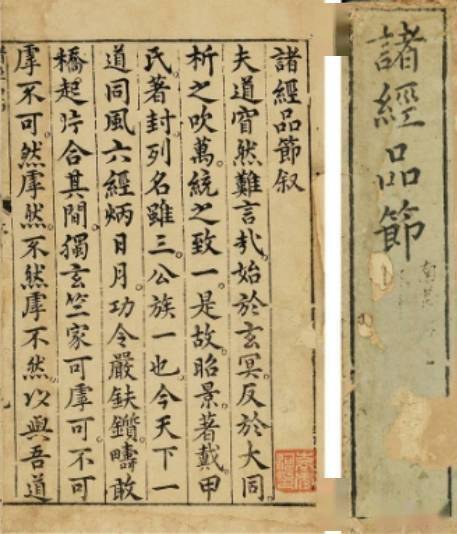 諸經品節
諸經品節叙
夫道窅然難言㢤始於玄冥反於大同
析之吹萬統之致一是故昭景著戴甲
氏著封列名雖三公族一也今天下一
道同風六經炳日月功令嚴鈇鑕疇敢
橋起片合其間獨玄竺家可虖可不可
虖不可然虖然不然虖不然以與吾道